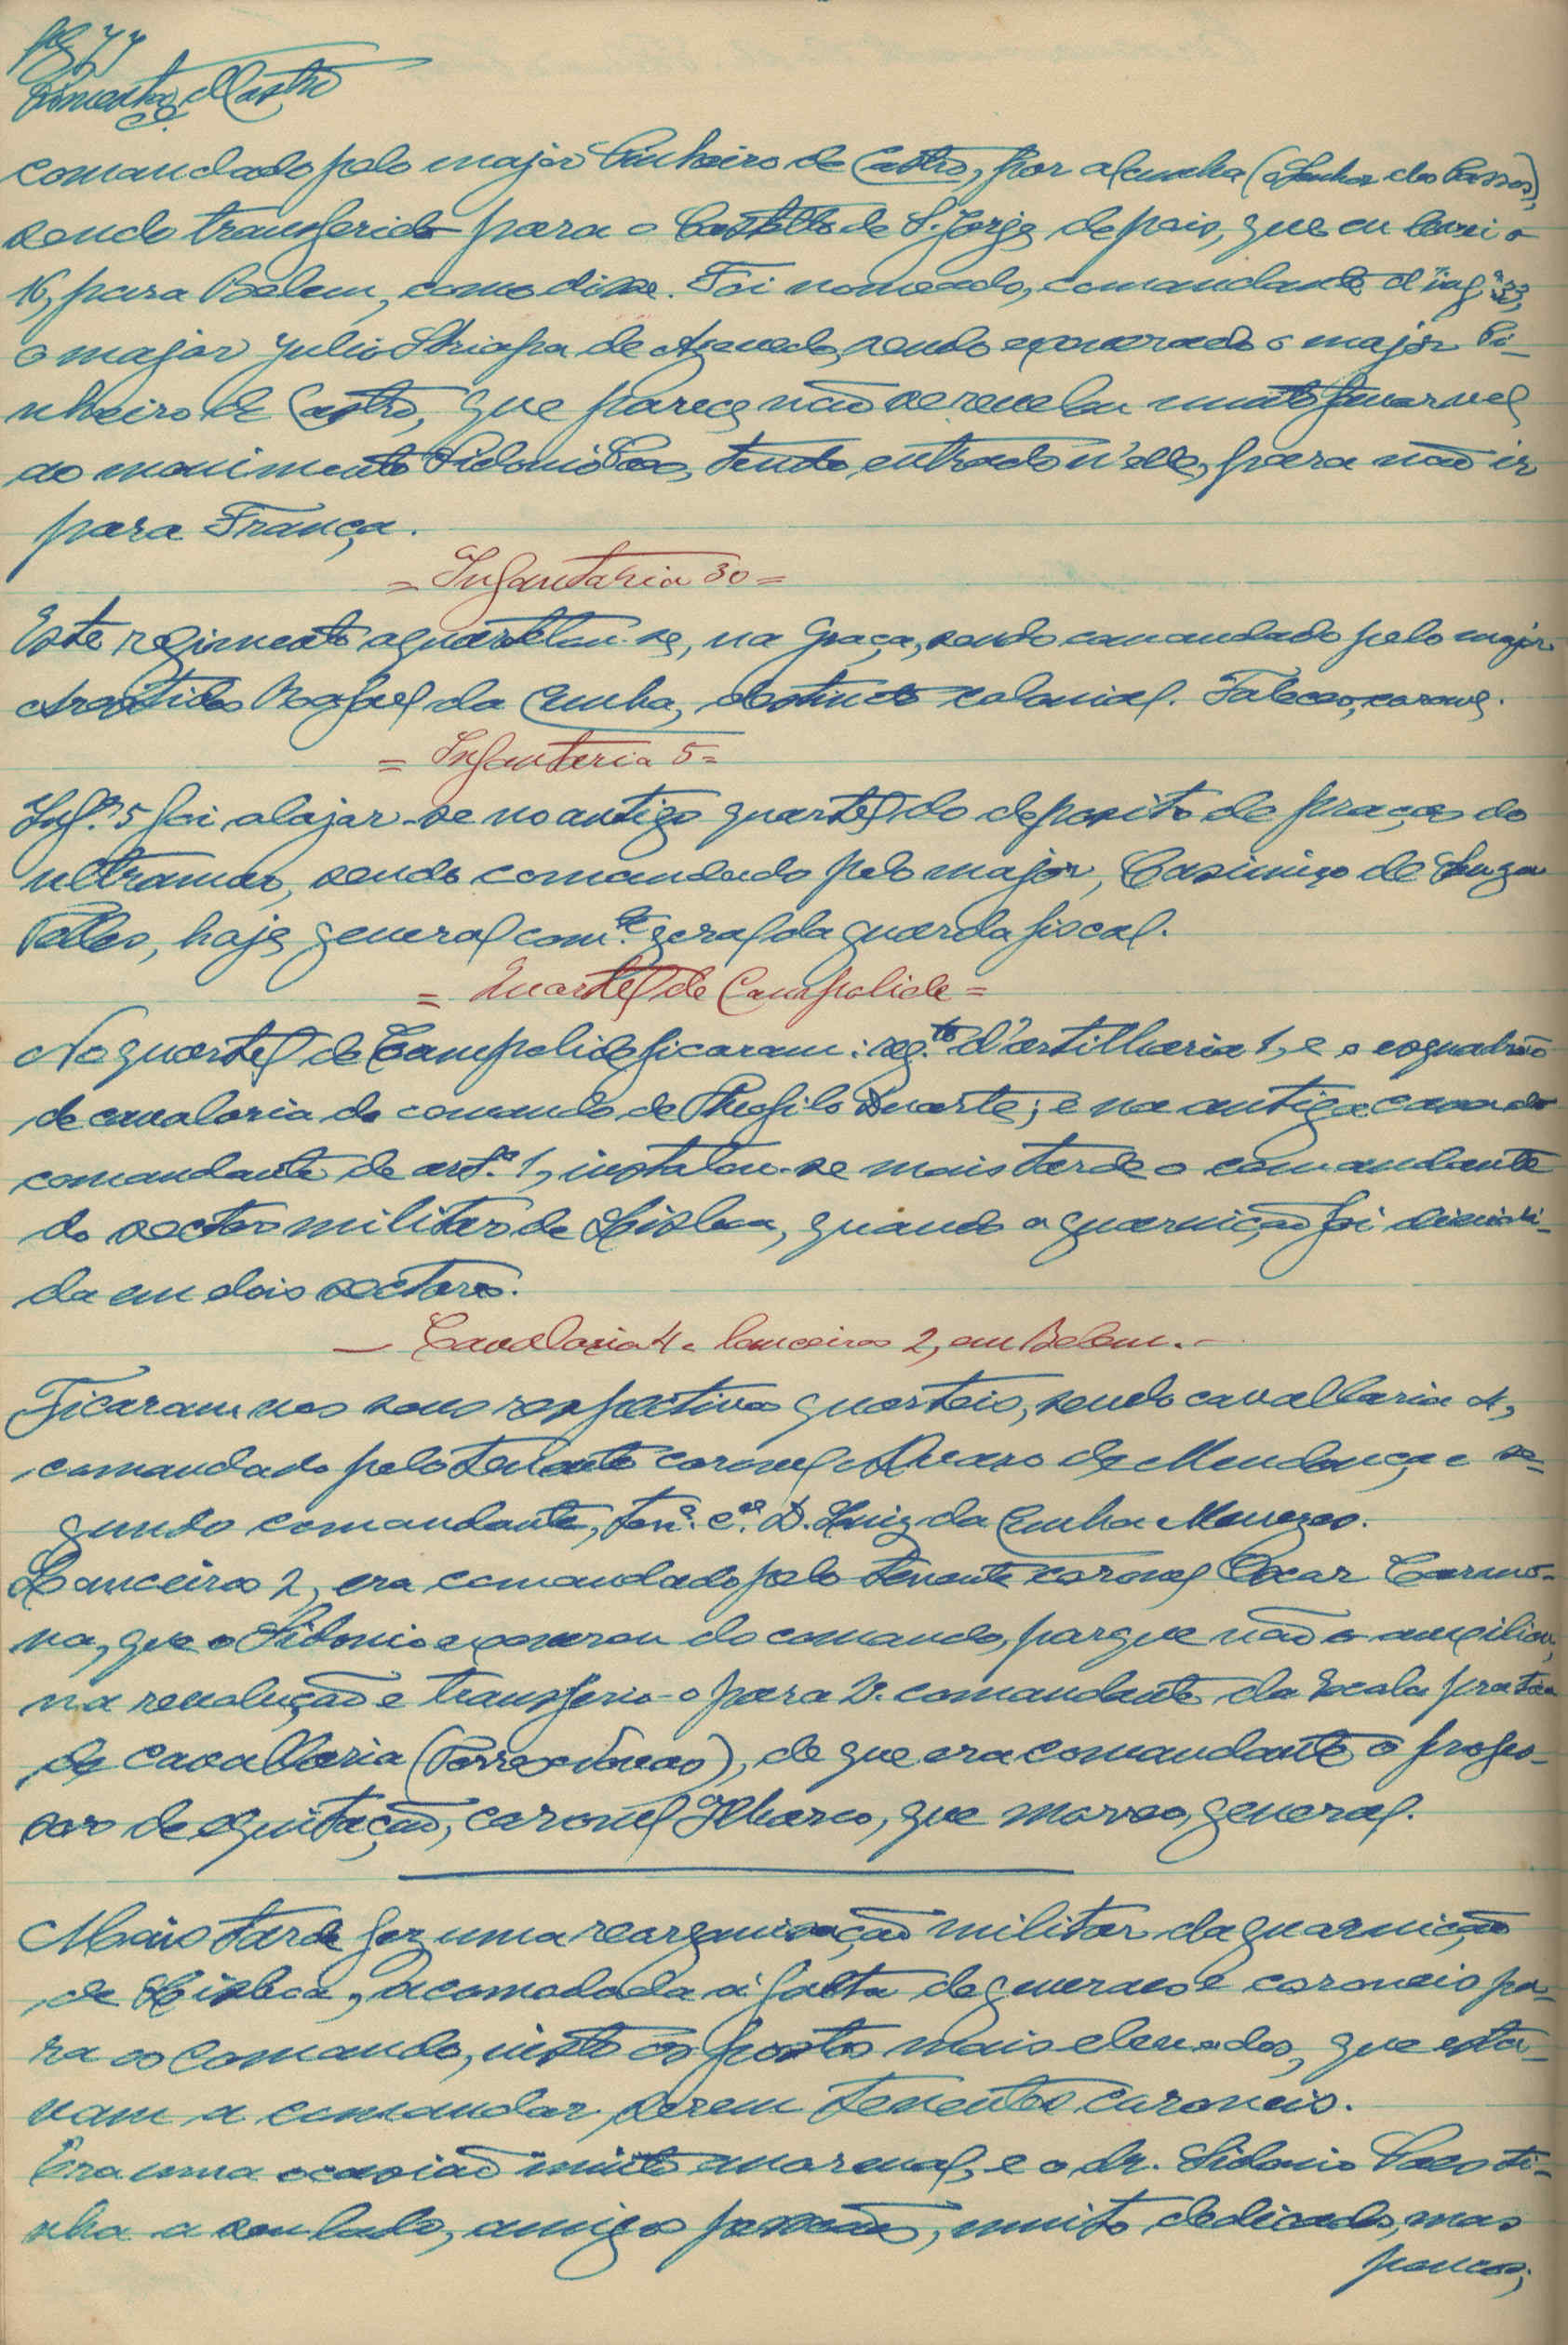 Pg 77
Pimenta de Castro
comandado pelo major Pinheiro de Castro, por alcunha (o Senhor dos Passos),
sendo transferido para o Castello de S. Jorge depois, que eu levei o
16, para Belem, como disse. Foi nomeado, comandante d'inf.ª 33,
o major Julio de Azevedo, sendo exonerado o major Pi-
nheiro de Castro, que parece não se revelou muito favoravel
ao movimento Sidonio Paes, tendo entrado n'elle, para não ir
para França.
= Infantaria 30 =
Este regimento aquartelou-se, na Graça, sendo comandado pelo major
Aristides Rafael da Cunha, distincto colonial. Faleceo, coronel.
= Infanteria 5 =
Inf.ª 5 foi alojar-se no antigo quartel do deposito de praças do
ultramar, sendo comandado pelo major, Casimiro de Souza
Telles, hoje general com.te geral da guarda fiscal.
= Quartel de Campolide =
No quartel de Campolide ficaram: reg.to d'artilharia 1, e o esquadrão
de cavalaria do comando de Theofilo Duarte; e na antiga casa do
comandante de art.ª 1, instalou-se mais tarde o comandante
do sector militar de Lisboa, quando a guarnição foi dividi-
da em dois sectores.
— Cavalaria 4 e lanceiros 2, em Belem. —
Ficaram nos seus respectivos quarteis, sendo cavallaria 4,
comandado pelo tenente coronel Alvaro de Mendonça e se-
gundo comandante, ten.e c.el D. Luiz da Cunha Menezes.
Lanceiros 2, era comandado pelo tenente coronel Oscar Carmo-
na, que o Sidonio exonerou do comando, porque não o auxiliou,
na revolução e transferio-o para 2º comandante da Escola pratica
de cavallaria (Torres Novas), de que era comandante o profes-
sor de equitação, coronel Ilharco, que morreo, general.
Mais tarde fez uma reorganisação militar da guarnição
de Lisboa, acomodada á falta de generaes e coroneis pa-
ra os comando, visto os postos mais elevados, que esta-
vam a comandar serem tenentes coroneis.
Era uma ocasião muito anormal, e o dr. Sidonio Paes ti-
nha a seu lado, amigos pessoaes, muito dedicados, mas
poucos;